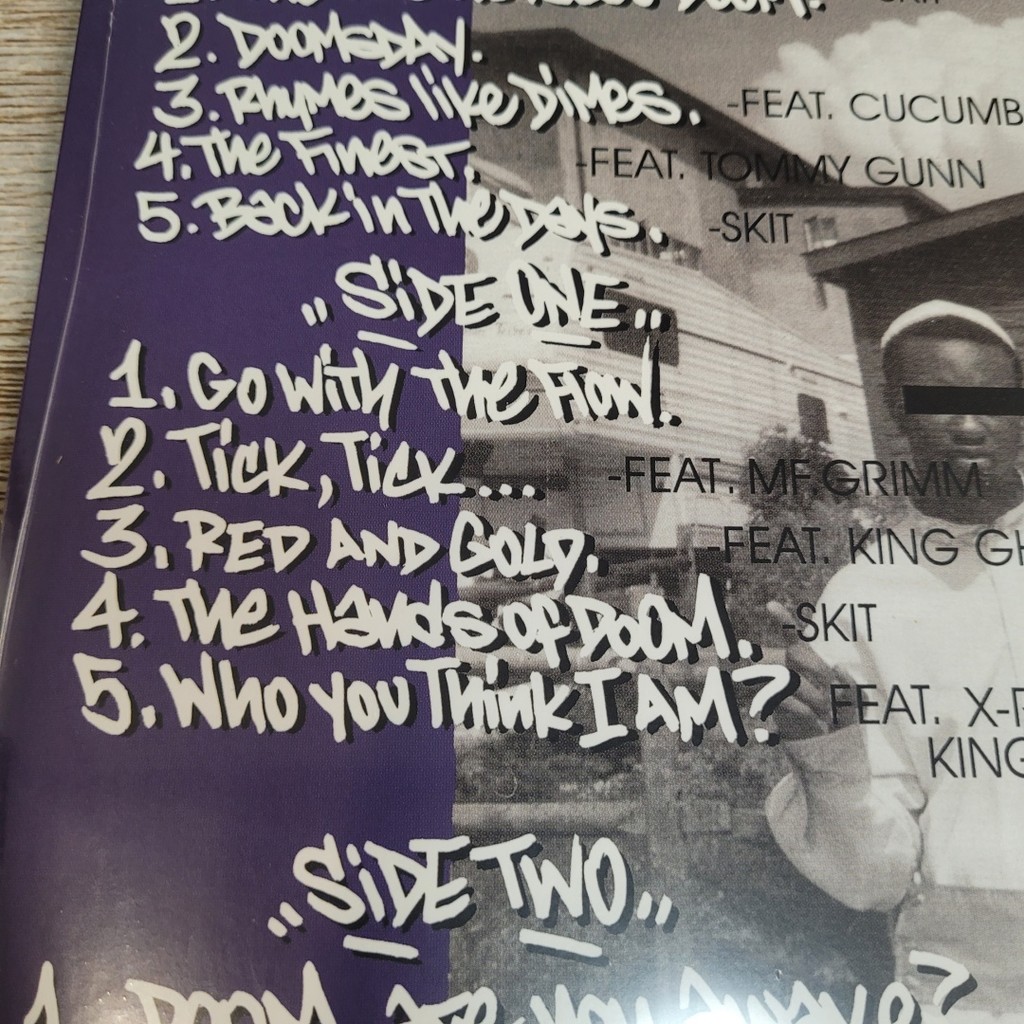 2. DOOMSDAY.
3. Rhymes like Dimes. -FEAT. CUCUMB
4. The Finest. -FEAT. TOMMY GUNN
5. Back in The Days. -SKIT
„ SiDE ONE „
1. Go with the Flow.
2. Tick, Tick.... -FEAT. MF.GRIMM
3. RED AND GOLD. -FEAT. KING GH
4. The Hands of DOOM. -SKIT
5. Who you Think I AM? FEAT. X-
KING
„ SiDE TWO „
1. DOOM, are you awake?